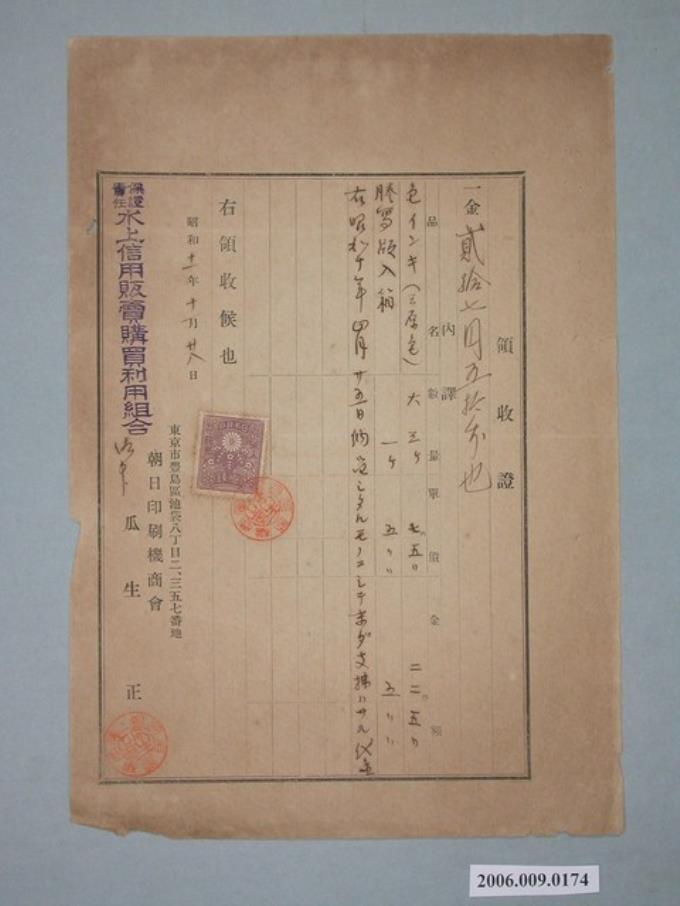 領收證
一金貳拾七円五拾錢也
內譯
品名 數量 單價 金額
色インキ(三原色) 大三ケ 七五〇 二二五〇
謄寫版入箱 一ケ 五〃〃 五〃〃
右昭和十年四月廿五日納品シタルモノニシテ未ダ支拂ハサル代金
右領收候也
昭和十一年十月廿八日
東京市豊島區池袋八丁目二、三五七番地
朝日印刷機商會
瓜生 正
保證責任水上信用販賣購買利用組合
2006.009.0174